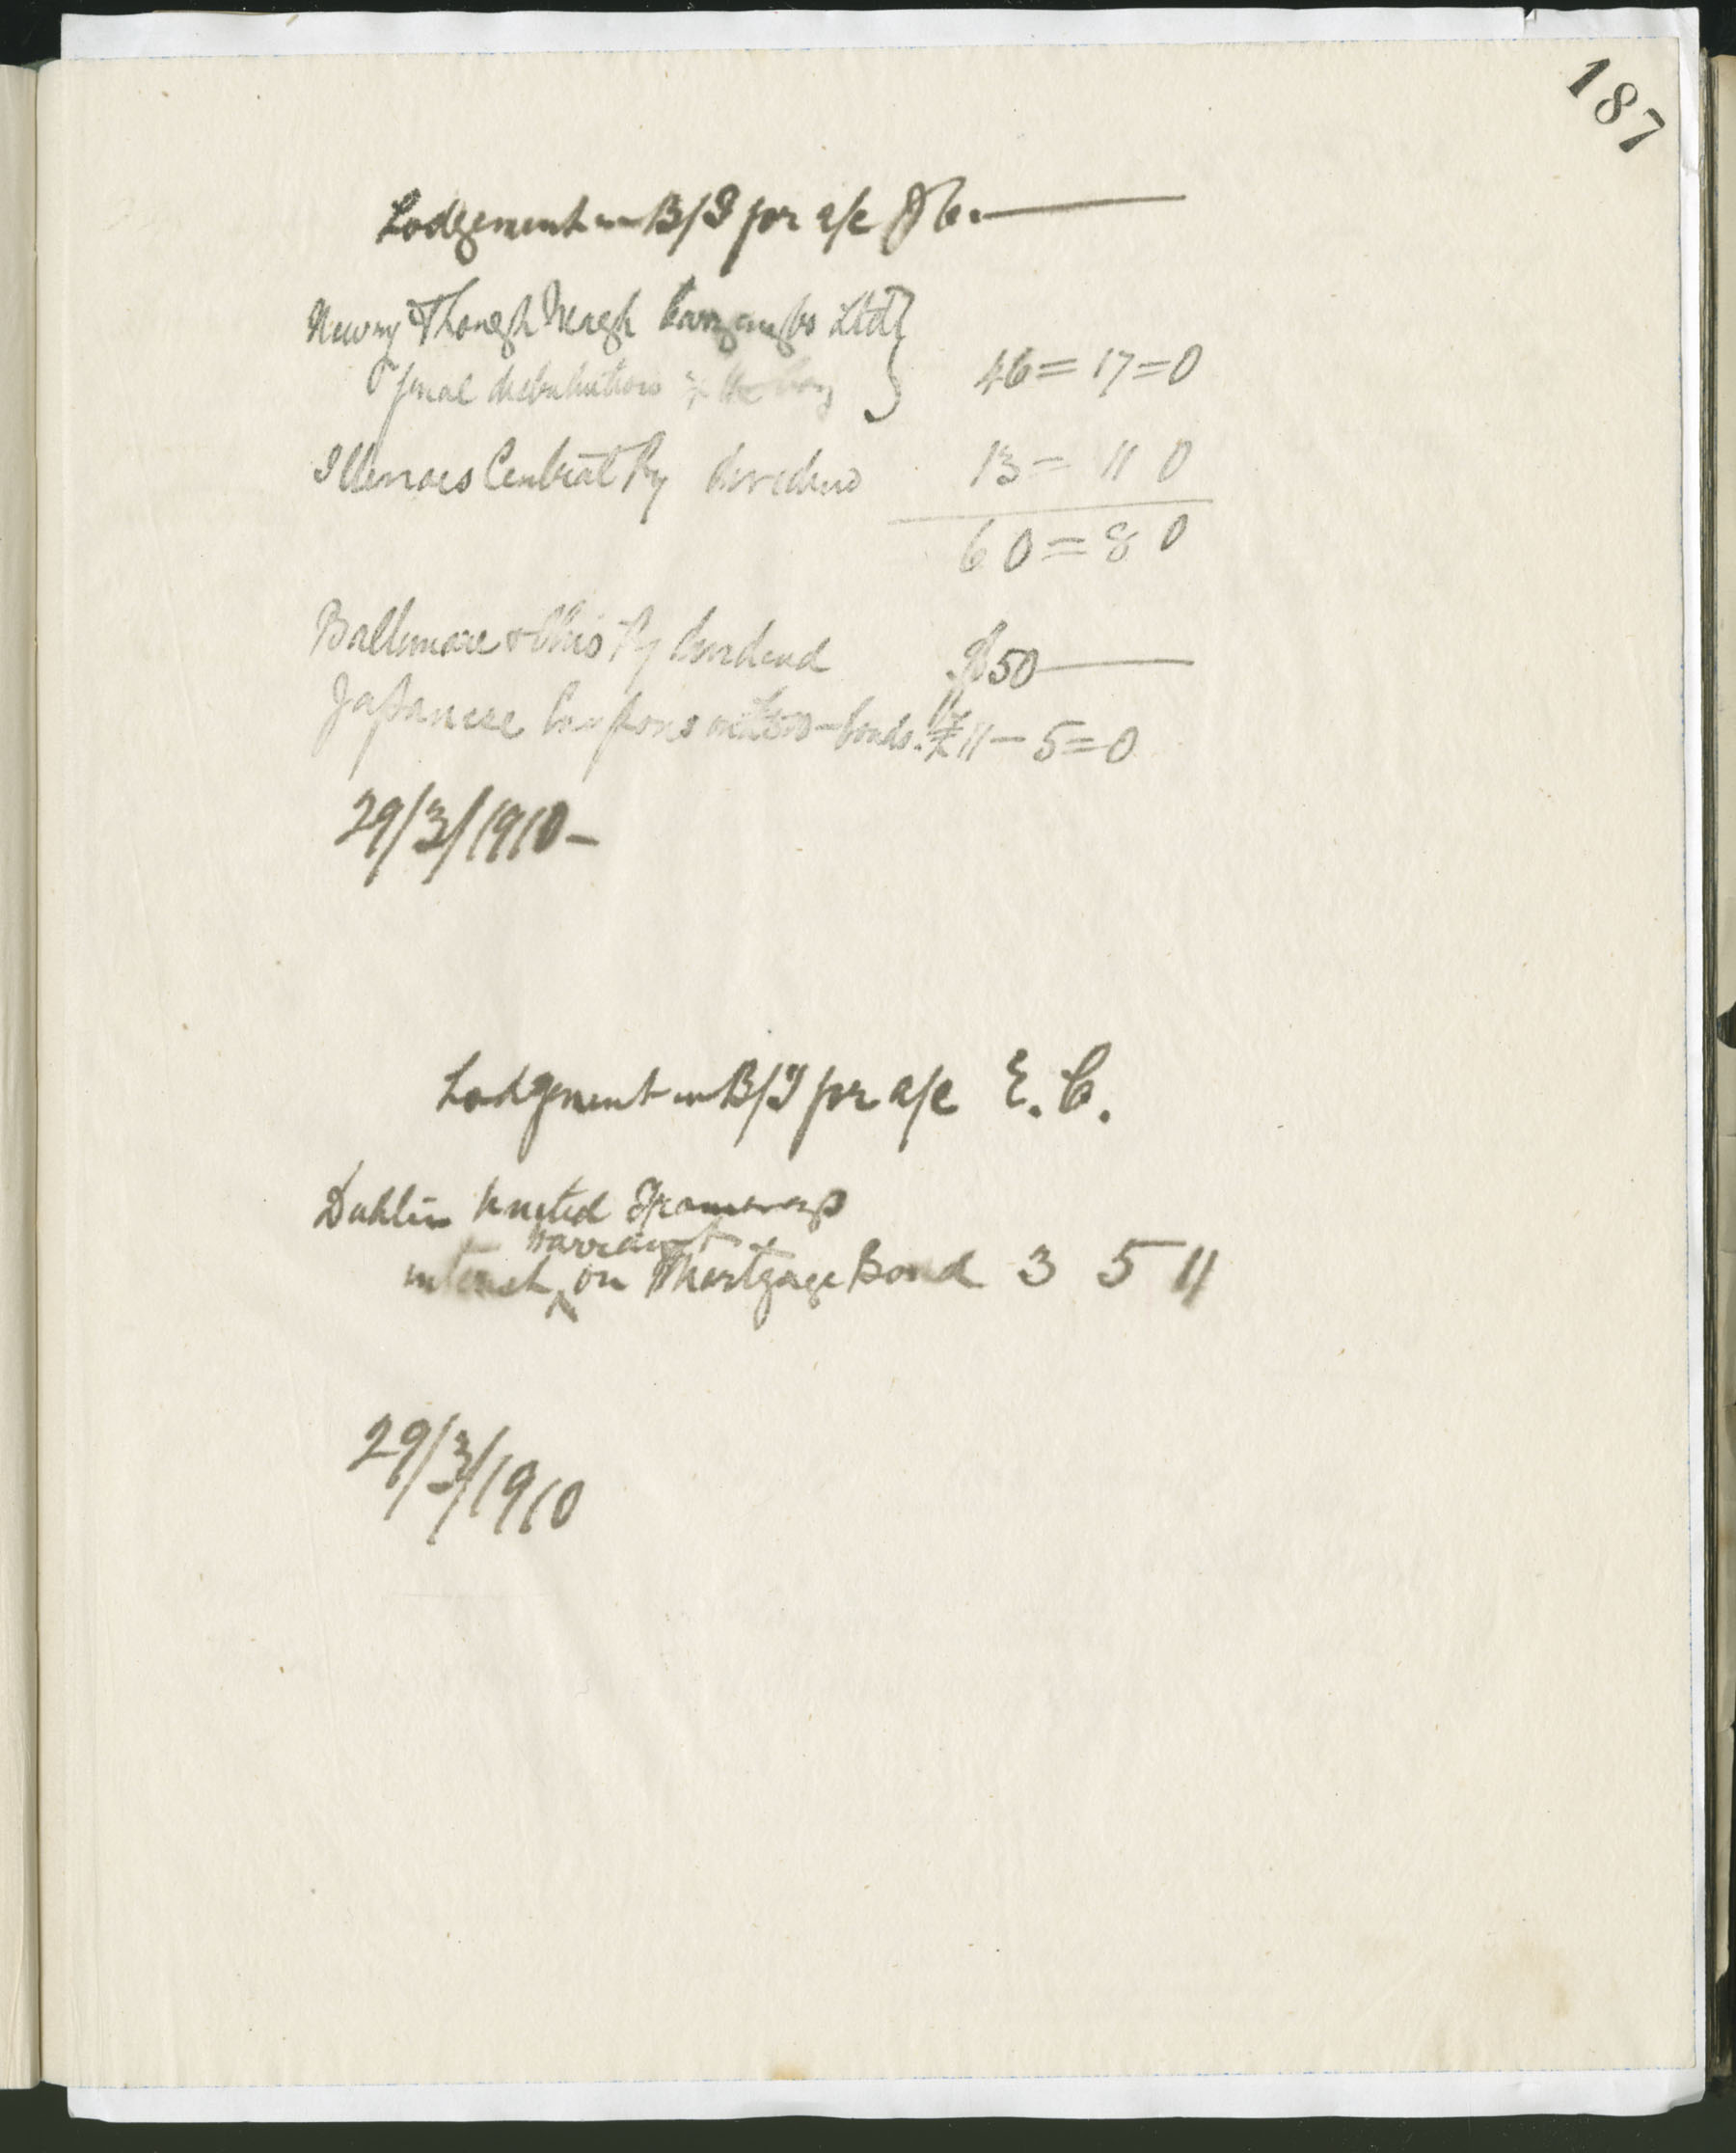 187
Lodgement in B/I pr a/c J C.
Newry & Lough Neagh Carrying Co Ltd }
final distribution 46=17=0
Illinois Central Ry dividend 13= 11 0
60=8 0
Baltimore & Ohio Ry dividend $50
Japanese Coupons bonds. £11-5=0
29/3/1910-
Lodgment in B/I pr a/c E. C.
Dublin United Tramways
warrant
interest ^ on Mortgage Bond 3 5 11
29/3/1910